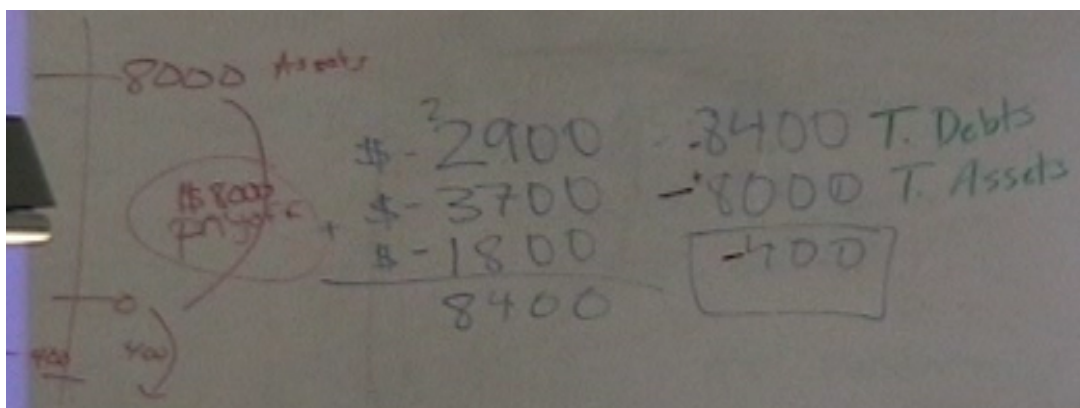 8000 Assets
$8000
payoff
0
-400 400
2
$ -2900
$ -3700
+ $ -1800
8400
-8400 T. Debts
-+8000 T. Assets
-400